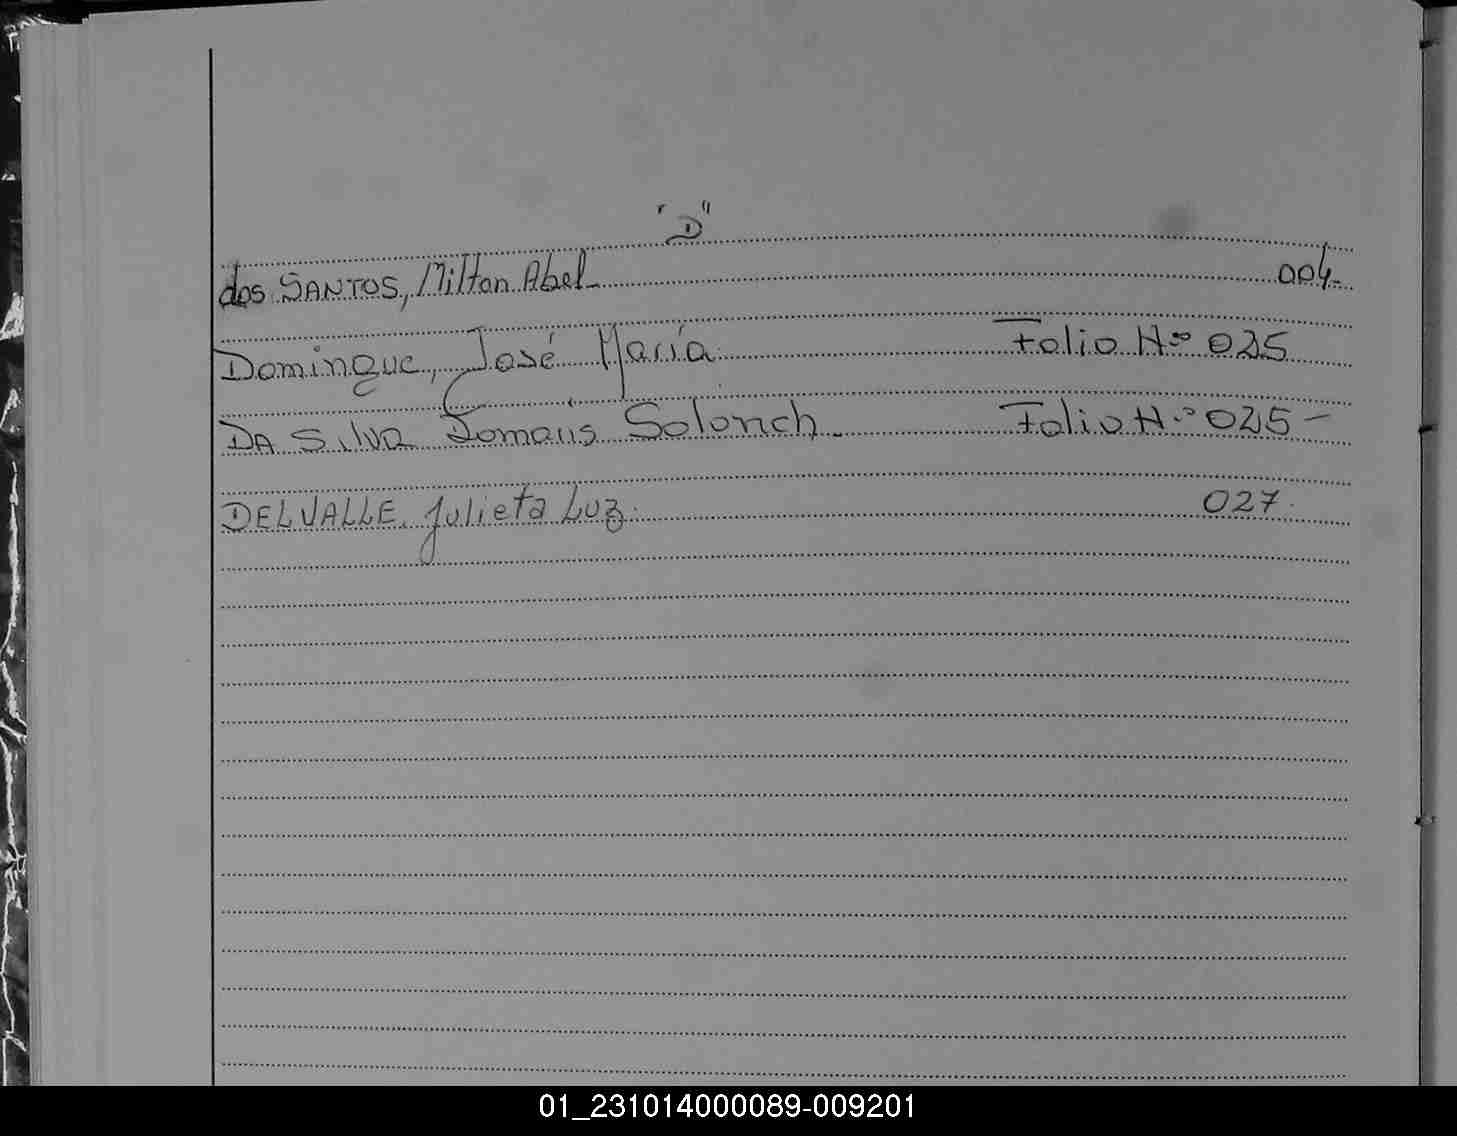 "D"
dos SANTOS, Milton Abel 004-
Domingue, José María Folio Nº 025
DA SilVa Solonch. Folio Nº 025-
DELVALLE, Julieta Luz. 027.
01_231014000089-009201